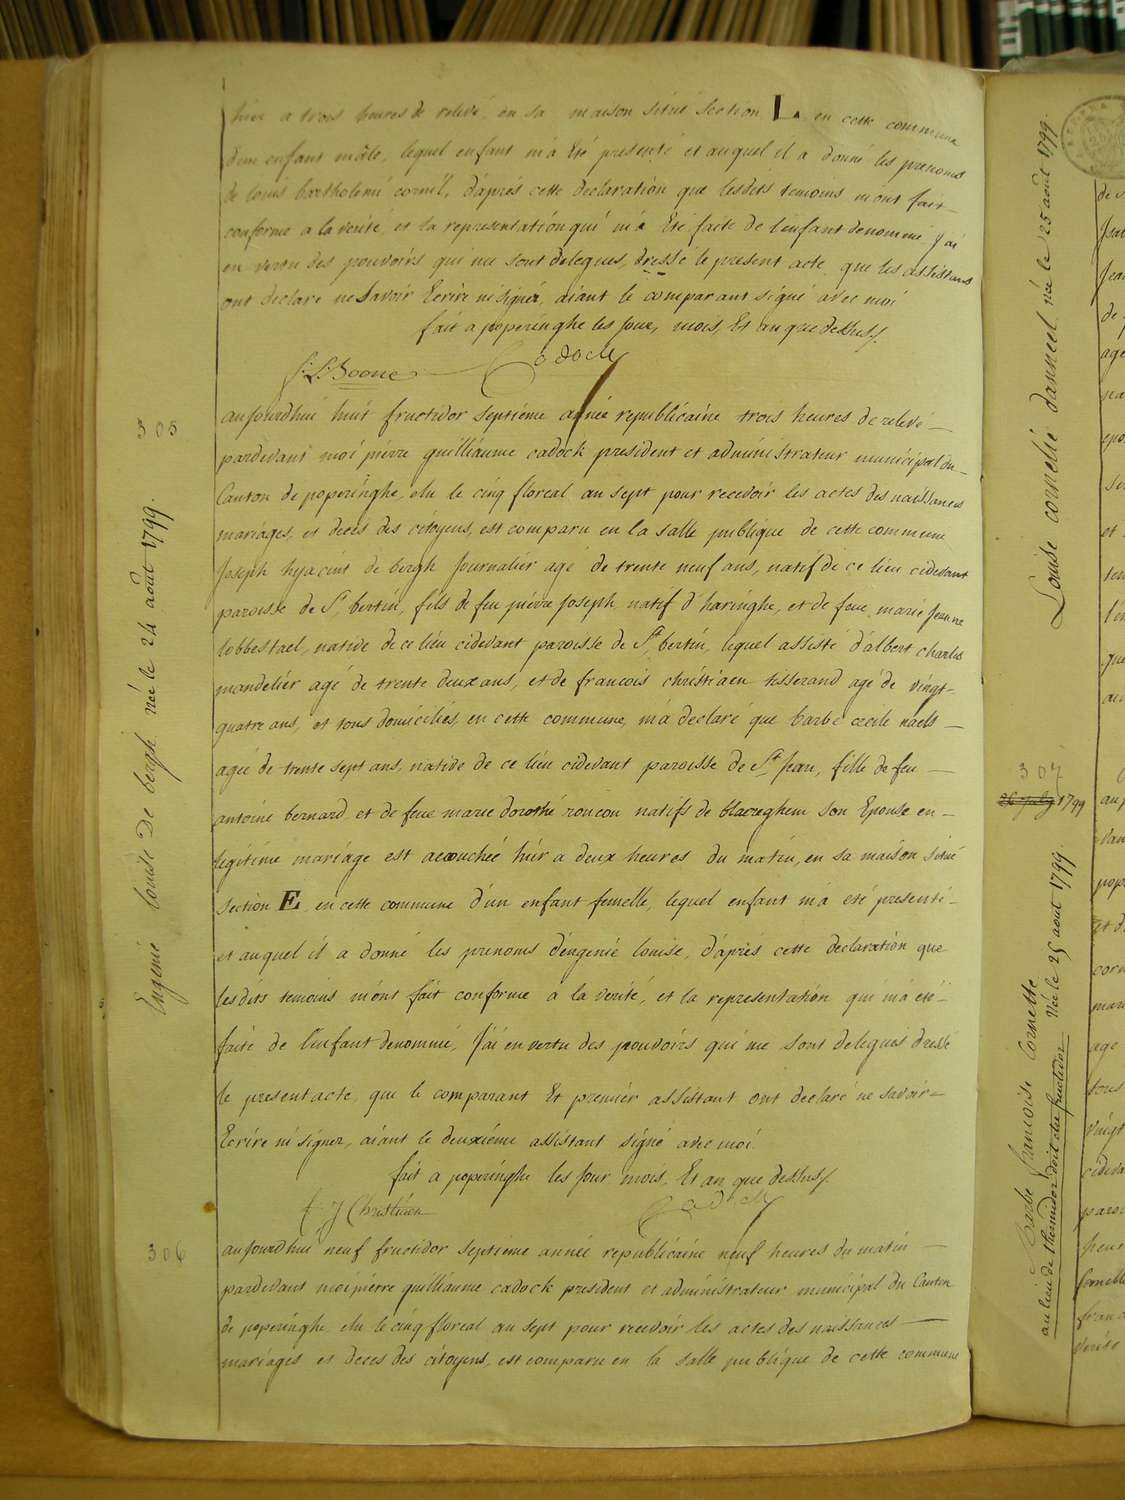 hier a trois heures de relevé, en sa maison situé section L. en cette commune
d'un enfant mâle, lequel enfant m'a été presenté et auquel il a donné les prenoms
de louis bartholemi cornil, d'aprés cette declaration que lesdits temoins m'ont fait
conforme a la verité, et la representation qui m'a été faite de l'enfant denommé, j'ai
en vertu des pouvoirs qui me sont delegues, dressé le present acte que les assistans
ont declaré ne savoir Ecrire ni signer, aiant le comparant signé avec moi
fait a poperinghe les jour, mois, Et an que dessus
Boone Cadock
305
aujourdhui huit fructidor septiéme année republicaine trois heures de relevé
pardevant moi piérre guilliaume cadock president et administrateur municipal du
Canton de poperinghe, elu le cinq floreal an sept pour recevoir les actes des naissances
mariages, et deces des citoyens, est comparu en la salle publique de cette commune
Joseph hyacint de bergh Journalier agé de trente neuf ans, natif de ce lieu cidevant
paroisse de St bertin, fils de feu piérre Joseph natif d'haringhe, et de feue marie Jeanne
lobbestael, native de ce lieu cidevant paroisse de St bertin, lequel assisté d'albert charles
mandeliér agé de trente deux ans, et de francois christiaen tisserand agé de vingt-
quatre ans, et tous domiciliés en cette commune, m'a declaré que barbe cecile naels
agée de trente sept ans, native de ce lieu cidevant paroisse de St Jean, fille de feu
antoine bernard et de feue marie dorothé roncou natifs de blaereghem son Epouse en
legitime mariage est accouchée hiér a deux heures du matin, en sa maison situé
section E, en cette commune d'un enfant femelle, lequel enfant m'a eté presenté
et auquel il a donné les prenoms d'engenié louise, d'aprés cette declaration que
lesdits temoins m'ont fait conforme a la verité, et la representation qui m'a eté
faite de l'enfant denommé, J'ai en vertu des pouvoirs qui me sont delegués dressé
le present acte, que le comparant Et premiér assistant ont declaré ne savoir
Ecrire ni signer, aiant le deuxiéme assistant signé avec moi
fait a poperinghe les Jour mois, Et an que dessus
f J Christiaen Cadock
306
aujourdhui neuf fructidor septiéme année republicaine neuf heures du matin
pardevant moi pierre guilliaume cadock president et administrateur municipal du Canton
de poperinghe, elu le cinq floreal an sept pour recevoir les actes des naissances
mariages et deces des citoyens, est comparu en la salle publique de cette commune
Engénié louise De bergh née le 24 août 1799.
Louise cornelie danneel née le 25 août 1799.
307
1799
Barbe francoise Cornette
Née le 25 aout 1799
au lieu de thermidor doit etre fructidor